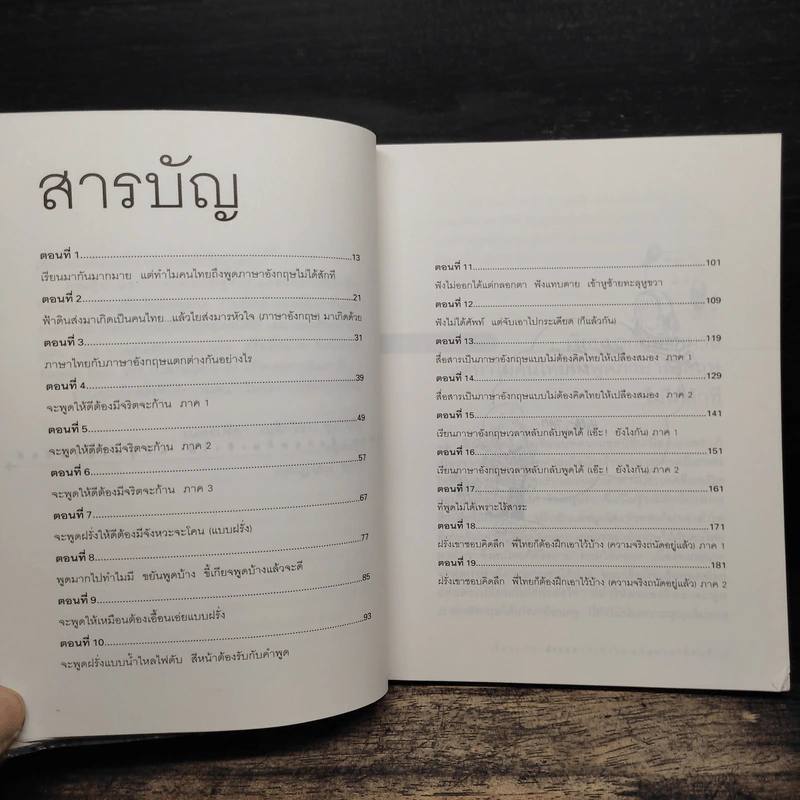 สารบัญ
ตอนที่ 1.....13
เรียนมากันมากมาย แต่ทำไมคนไทยถึงพูดภาษาอังกฤษไม่ได้สักที
ตอนที่ 2.....21
ฟ้าดินส่งมาเกิดเป็นคนไทย...แล้วไยส่งมารหัวใจ (ภาษาอังกฤษ) มาเกิดด้วย
ตอนที่ 3.....31
ภาษาไทยกับภาษาอังกฤษแตกต่างกันอย่างไร
ตอนที่ 4.....39
จะพูดให้ดีต้องมีจริตจะก้าน ภาค 1
ตอนที่ 5.....49
จะพูดให้ดีต้องมีจริตจะก้าน ภาค 2
ตอนที่ 6.....57
จะพูดให้ดีต้องมีจริตจะก้าน ภาค 3
ตอนที่ 7.....67
จะพูดฝรั่งให้ดีต้องมีจังหวะจะโคน (แบบฝรั่ง)
ตอนที่ 8.....77
พูดมากไปทำไมมี ขยันพูดบ้าง ขี้เกียจพูดบ้างแล้วจะดี
ตอนที่ 9.....85
จะพูดให้เหมือนต้องเอื้อนเอ่ยแบบฝรั่ง
ตอนที่ 10.....93
จะพูดฝรั่งแบบน้ำไหลไฟดับ สีหน้าต้องรับกับคำพูด
ตอนที่ 11.....101
ฟังไม่ออกได้แต่กลอกตา ฟังแทบตาย เข้าหูซ้ายทะลุหูขวา
ตอนที่ 12.....109
ฟังไม่ได้ศัพท์ แต่จับเอาไปกระเดียด (ก็แล้วกัน)
ตอนที่ 13.....119
สื่อสารเป็นภาษาอังกฤษแบบไม่ต้องคิดไทยให้เปลืองสมอง ภาค 1
ตอนที่ 14.....129
สื่อสารเป็นภาษาอังกฤษแบบไม่ต้องคิดไทยให้เปลืองสมอง ภาค 2
ตอนที่ 15.....141
เรียนภาษาอังกฤษเวลาหลับกลับพูดได้ (เอ๊ะ! ยังไงกัน) ภาค 1
ตอนที่ 16.....151
เรียนภาษาอังกฤษเวลาหลับกลับพูดได้ (เอ๊ะ! ยังไงกัน) ภาค 2
ตอนที่ 17.....161
ที่พูดไม่ได้เพราะไร้สาระ
ตอนที่ 18.....171
ฝรั่งเขาชอบคิดลึก พี่ไทยก็ต้องฝึกเอาไว้บ้าง (ความจริงถนัดอยู่แล้ว) ภาค 1
ตอนที่ 19.....181
ฝรั่งเขาชอบคิดลึก พี่ไทยก็ต้องฝึกเอาไว้บ้าง (ความจริงถนัดอยู่แล้ว) ภาค 2